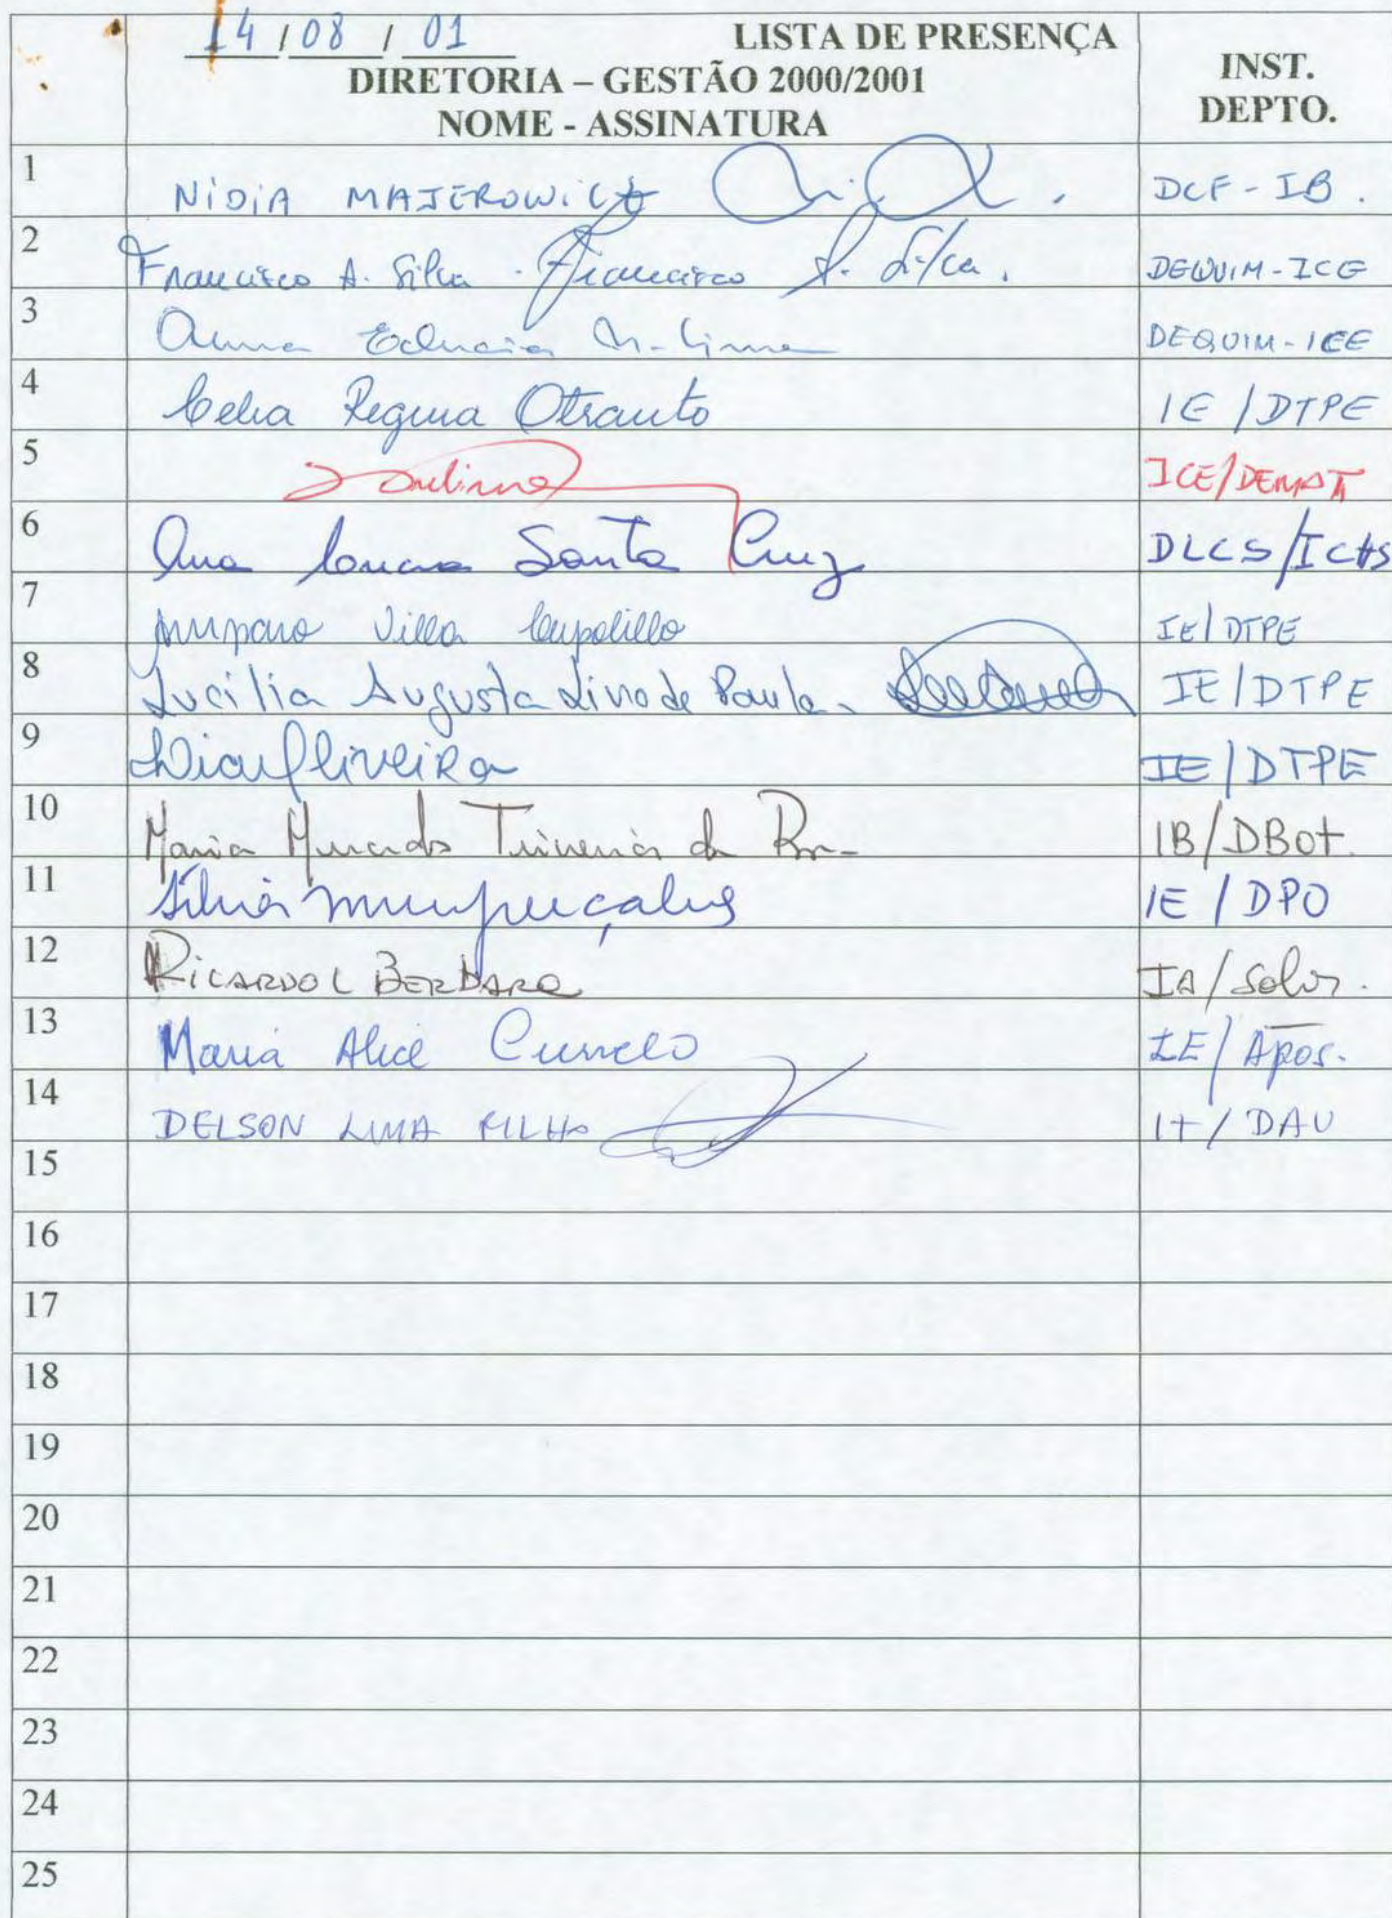 14/08/01 LISTA DE PRESENÇA
DIRETORIA – GESTÃO 2000/2001
NOME - ASSINATURA
INST.
DEPTO.
1 NIDIA MAJEROWICZ DCF-IB.
2 Francisco A. Silva - Francisco A. Silva. DEQUIM-ICE
3 DEQUIM-ICE
4 Celia Regina Otranto IE/DTPE
5 ICE/DEMAT
6 Ana Santa Cruz DLCS/ICHS
7 Amparo Villa Cupolillo IE/DTPE
8 Lucilia Augusta Lino de Paula IE/DTPE
9 Oliveira IE/DTPE
10 Maria IB/DBot.
11 IE/DPO
12 RICARDO L BERBARA IA/Solos.
13 Maria Alice IE/Apos.
14 DELSON LIMA FILHO IT/DAU
15
16
17
18
19
20
21
22
23
24
25